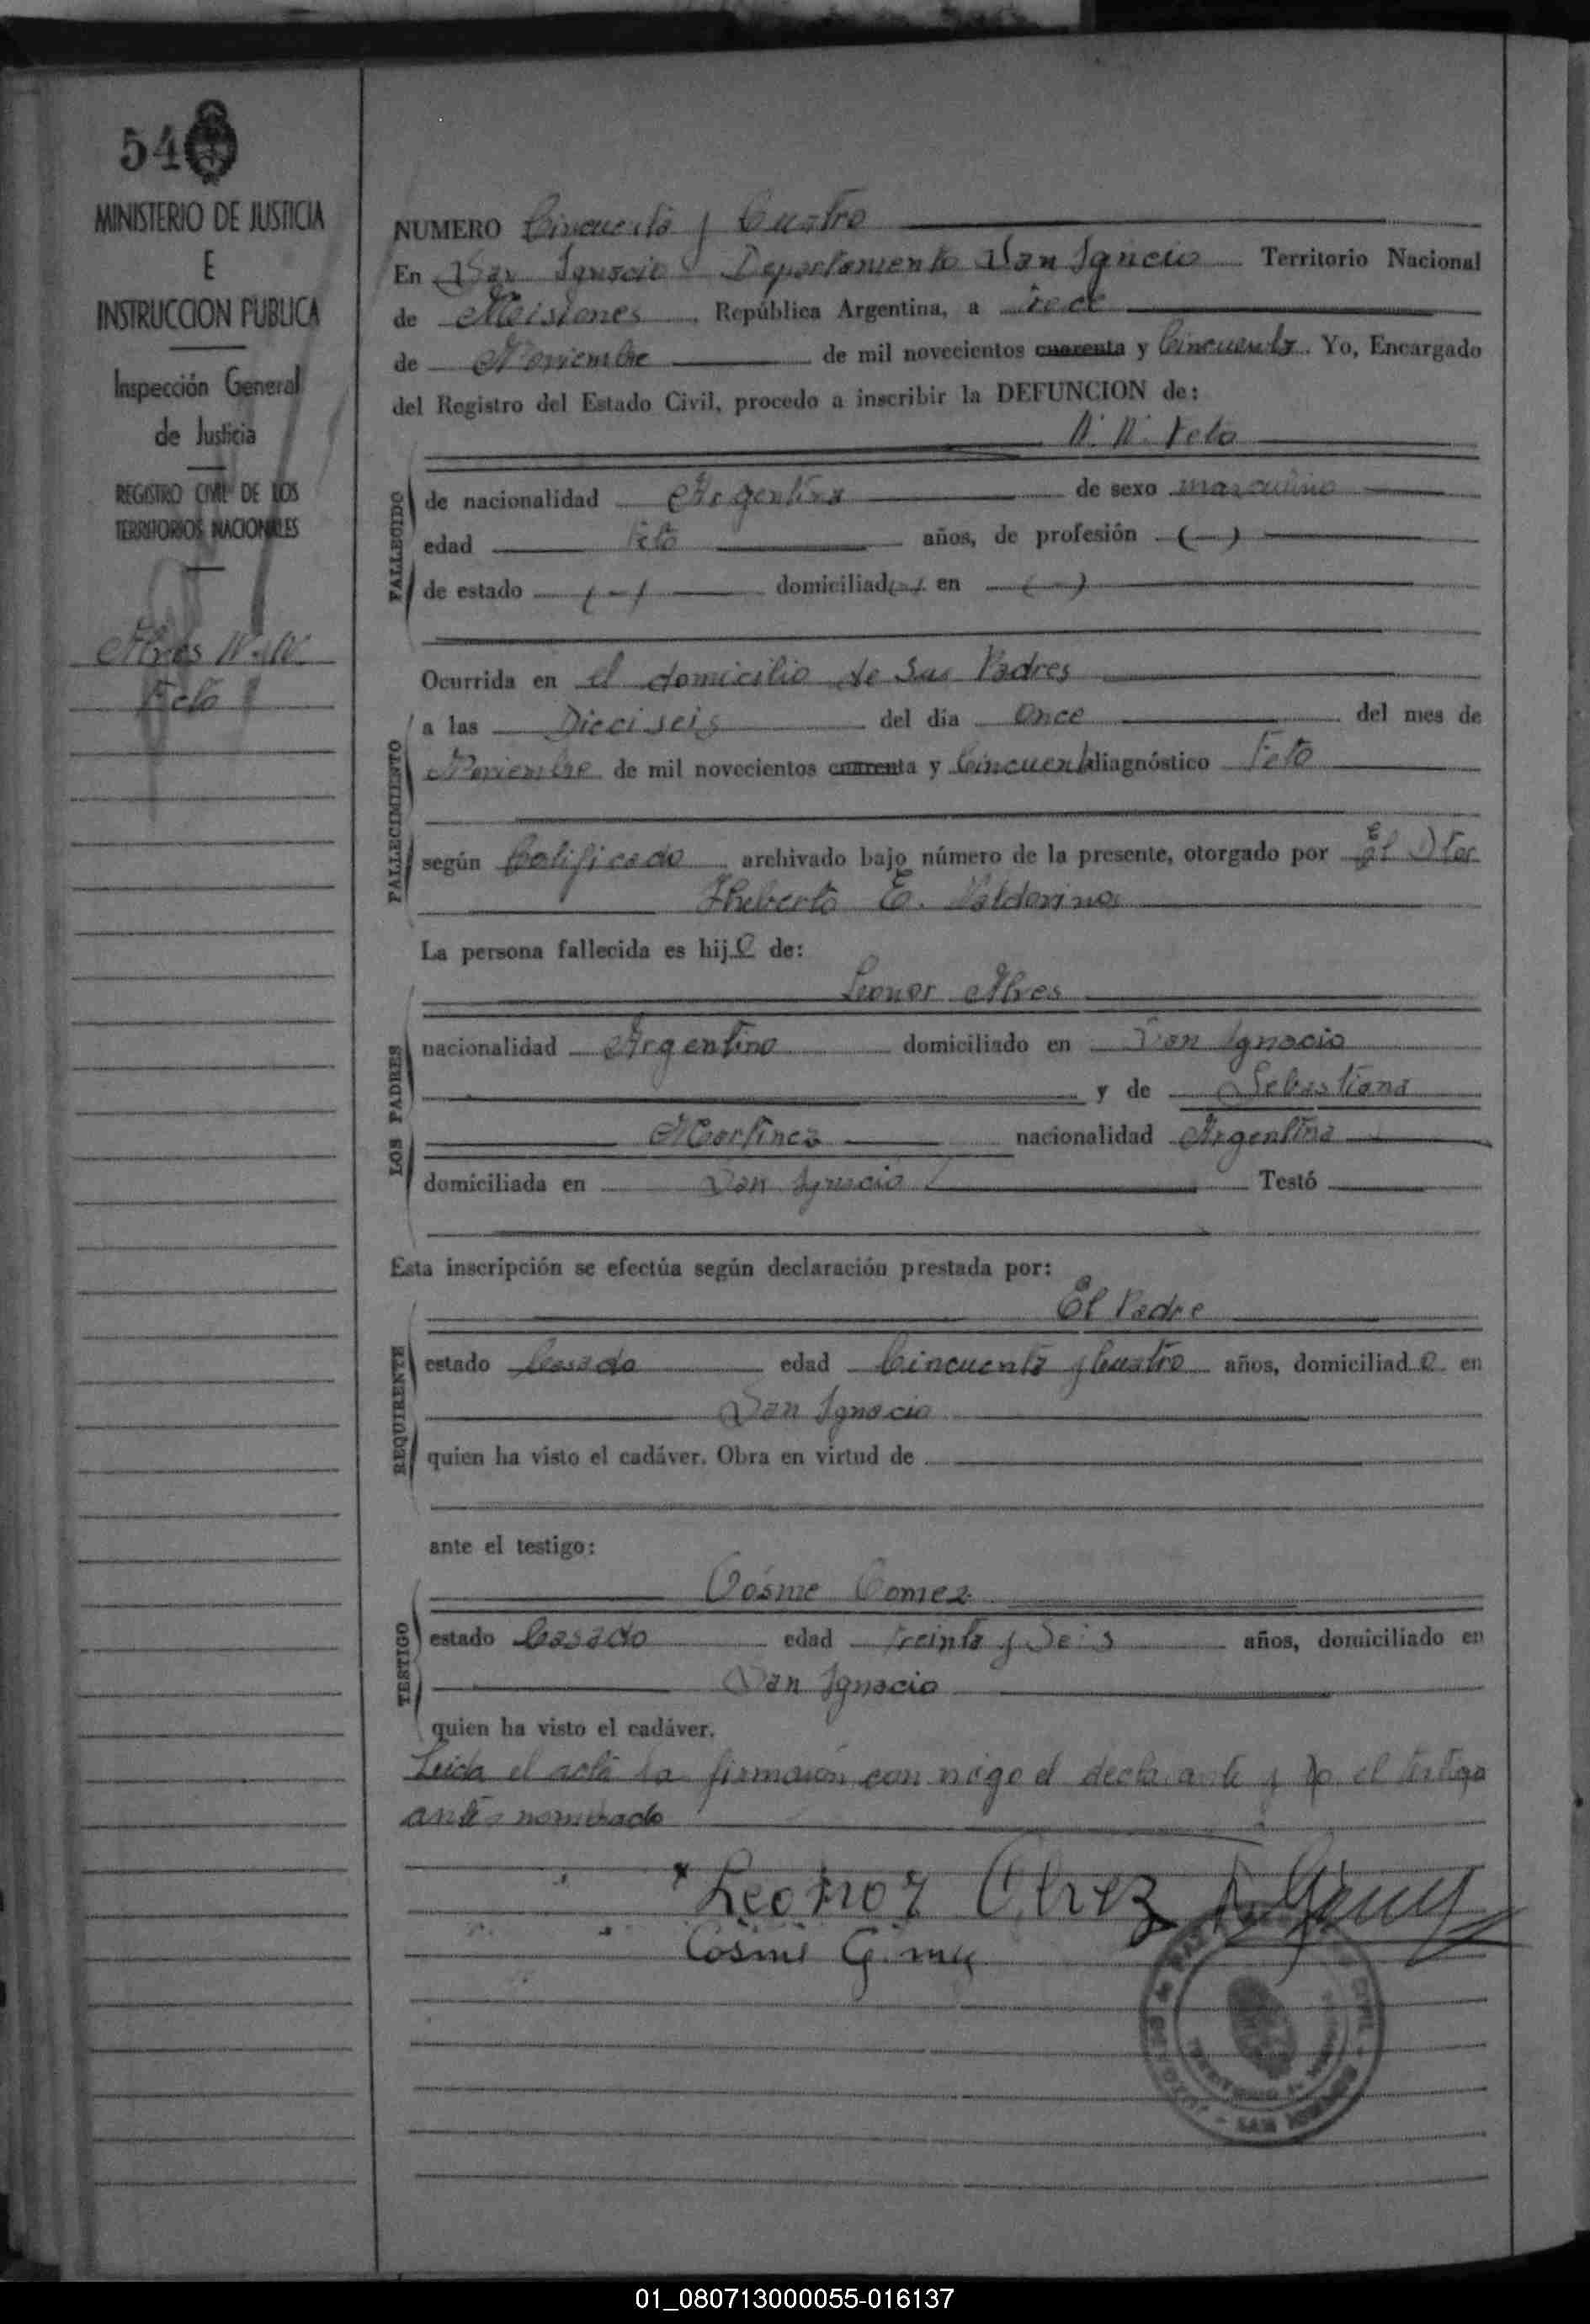 54
MINISTERIO DE JUSTICIA
E
INSTRUCCION PUBLICA
Inspección General
de Justicia
REGISTRO CIVIL DE LOS
TERRITORIOS NACIONALES
Alves N. N.
Feto
NUMERO Cincuenta y Cuatro
En San Ignacio Departamento San Ignacio Territorio Nacional
de Misiones República Argentina, a trece
de Noviembre de mil novecientos cuarenta y Cincuenta. Yo, Encargado
del Registro del Estado Civil, procedo a inscribir la DEFUNCION de:
N. N. Feto
FALLECIDO
de nacionalidad Argentina de sexo masculino
edad Feto años, de profesión (—)
de estado (—) domiciliad(—) en (—)
FALLECIMIENTO
Ocurrida en el domicilio de Sus Padres
a las Dieciseis del día once del mes de
Noviembre de mil novecientos cuarenta y Cincuenta diagnóstico Feto
según Certificado archivado bajo número de la presente, otorgado por El Dtor
E. Valdovinos
La persona fallecida es hijo de:
LOS PADRES
Leonor Alves
nacionalidad Argentino domiciliado en San Ignacio
y de Sebastiana
Martinez nacionalidad Argentina
domiciliada en San Ignacio Testó
Esta inscripción se efectúa según declaración prestada por:
REQUIRENTE
El Padre
estado Casado edad Cincuenta y Cuatro años, domiciliado en
San Ignacio
quien ha visto el cadáver. Obra en virtud de
ante el testigo:
TESTIGO
Cosme Gomez
estado Casado edad treinta y Seis años, domiciliado en
San Ignacio
quien ha visto el cadáver.
Leida el acta la firmaron con migo el declarante y el testigo
antes nombrado
Leonor Alvez
Cosme
SAN IGNACIO
01_080713000055-016137